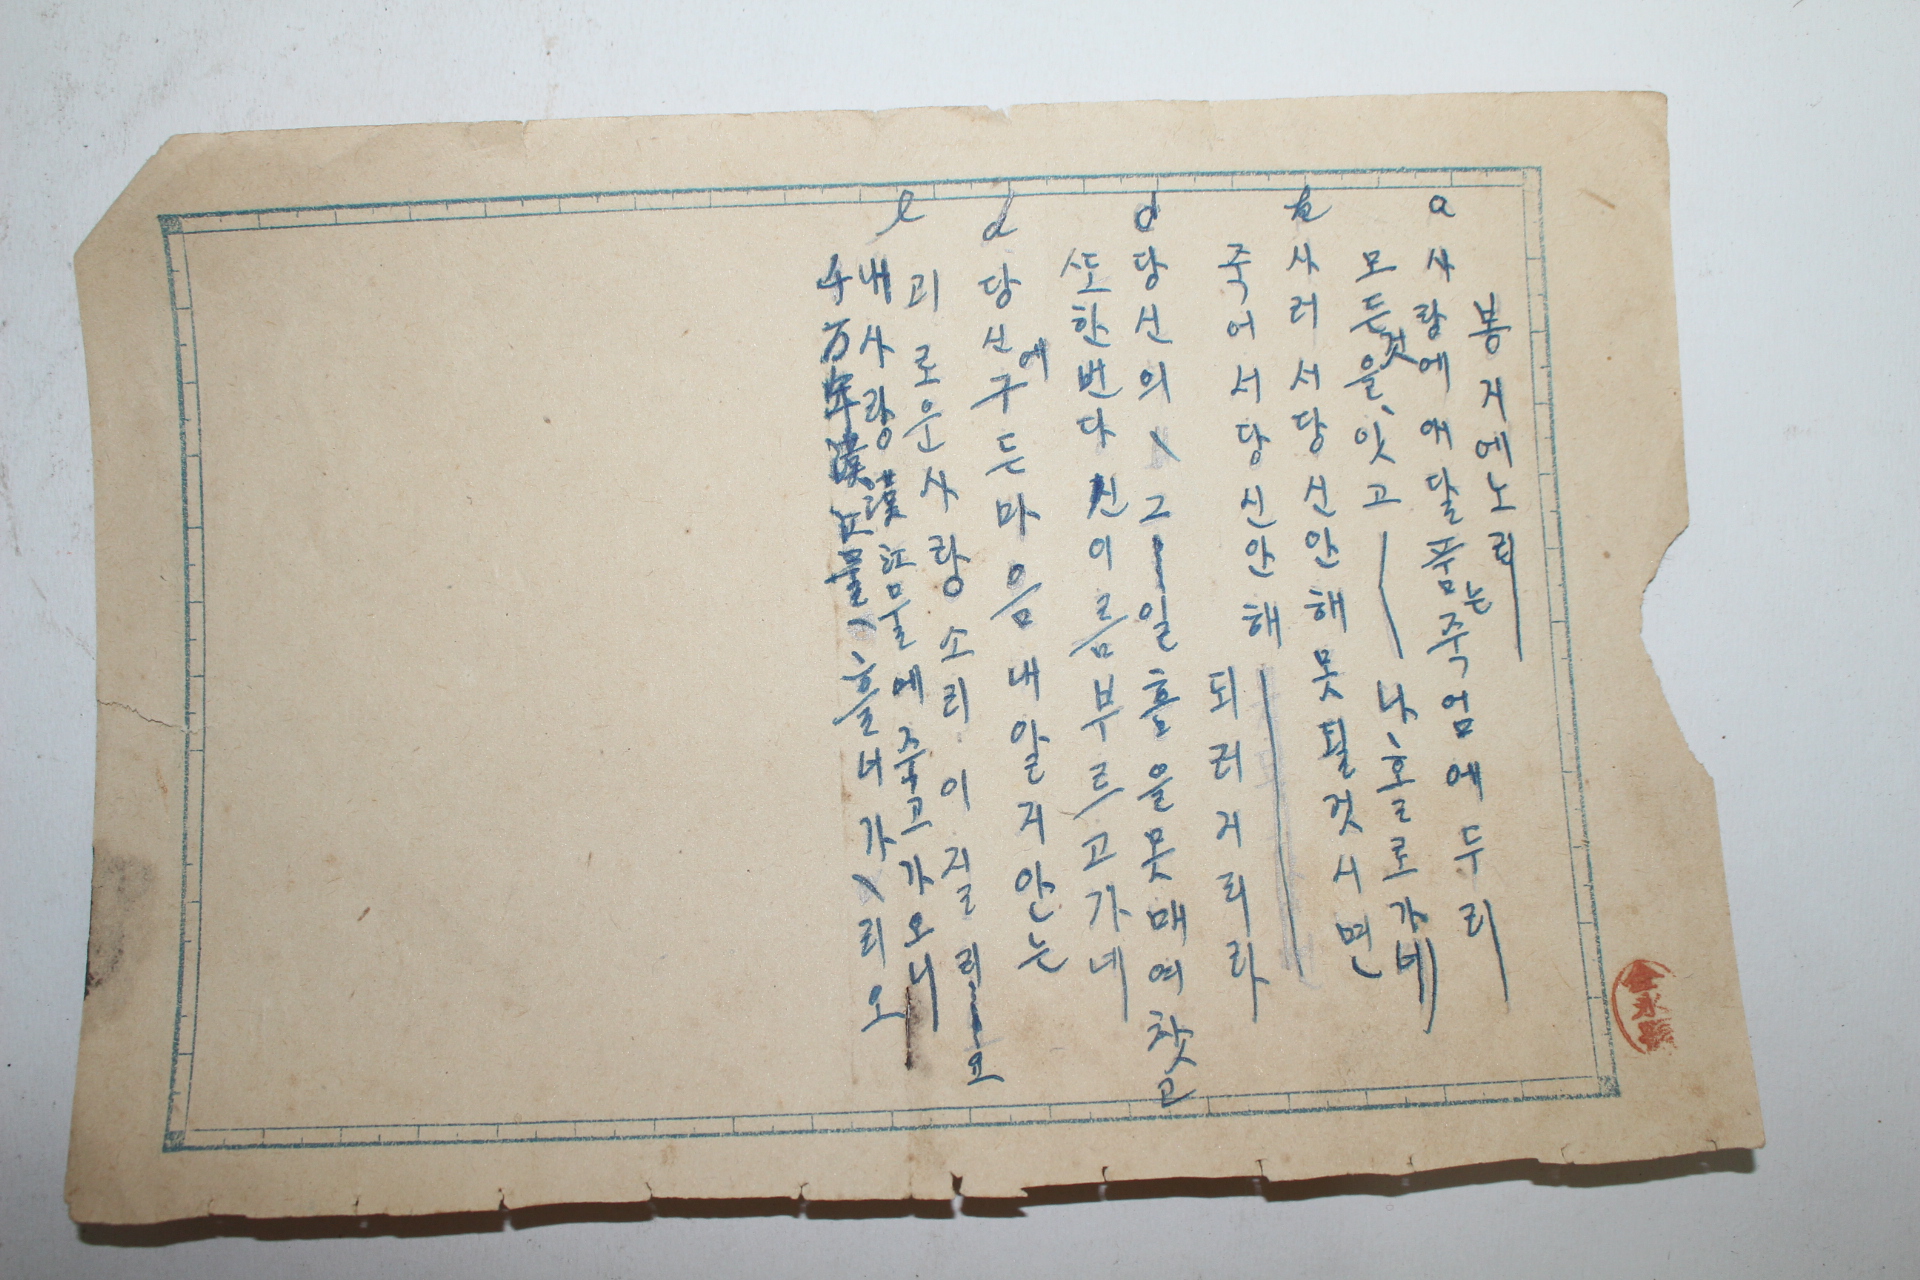 봉지에노리
a 사랑에애달품는죽엄에두리
모든것을、잇고 낫、흘로가네
b 사러서당신안해못될것시면
죽어서당신안해 되러거리라
d 당신의 그 일흠을못매여찾고
또한번다신이름부르고가네
d 당신에구든마음내알지안는
괴로운사랑소리이질리요
e 내사랑漢江물에죽고가오니
千万年漢江물、흘너가리오